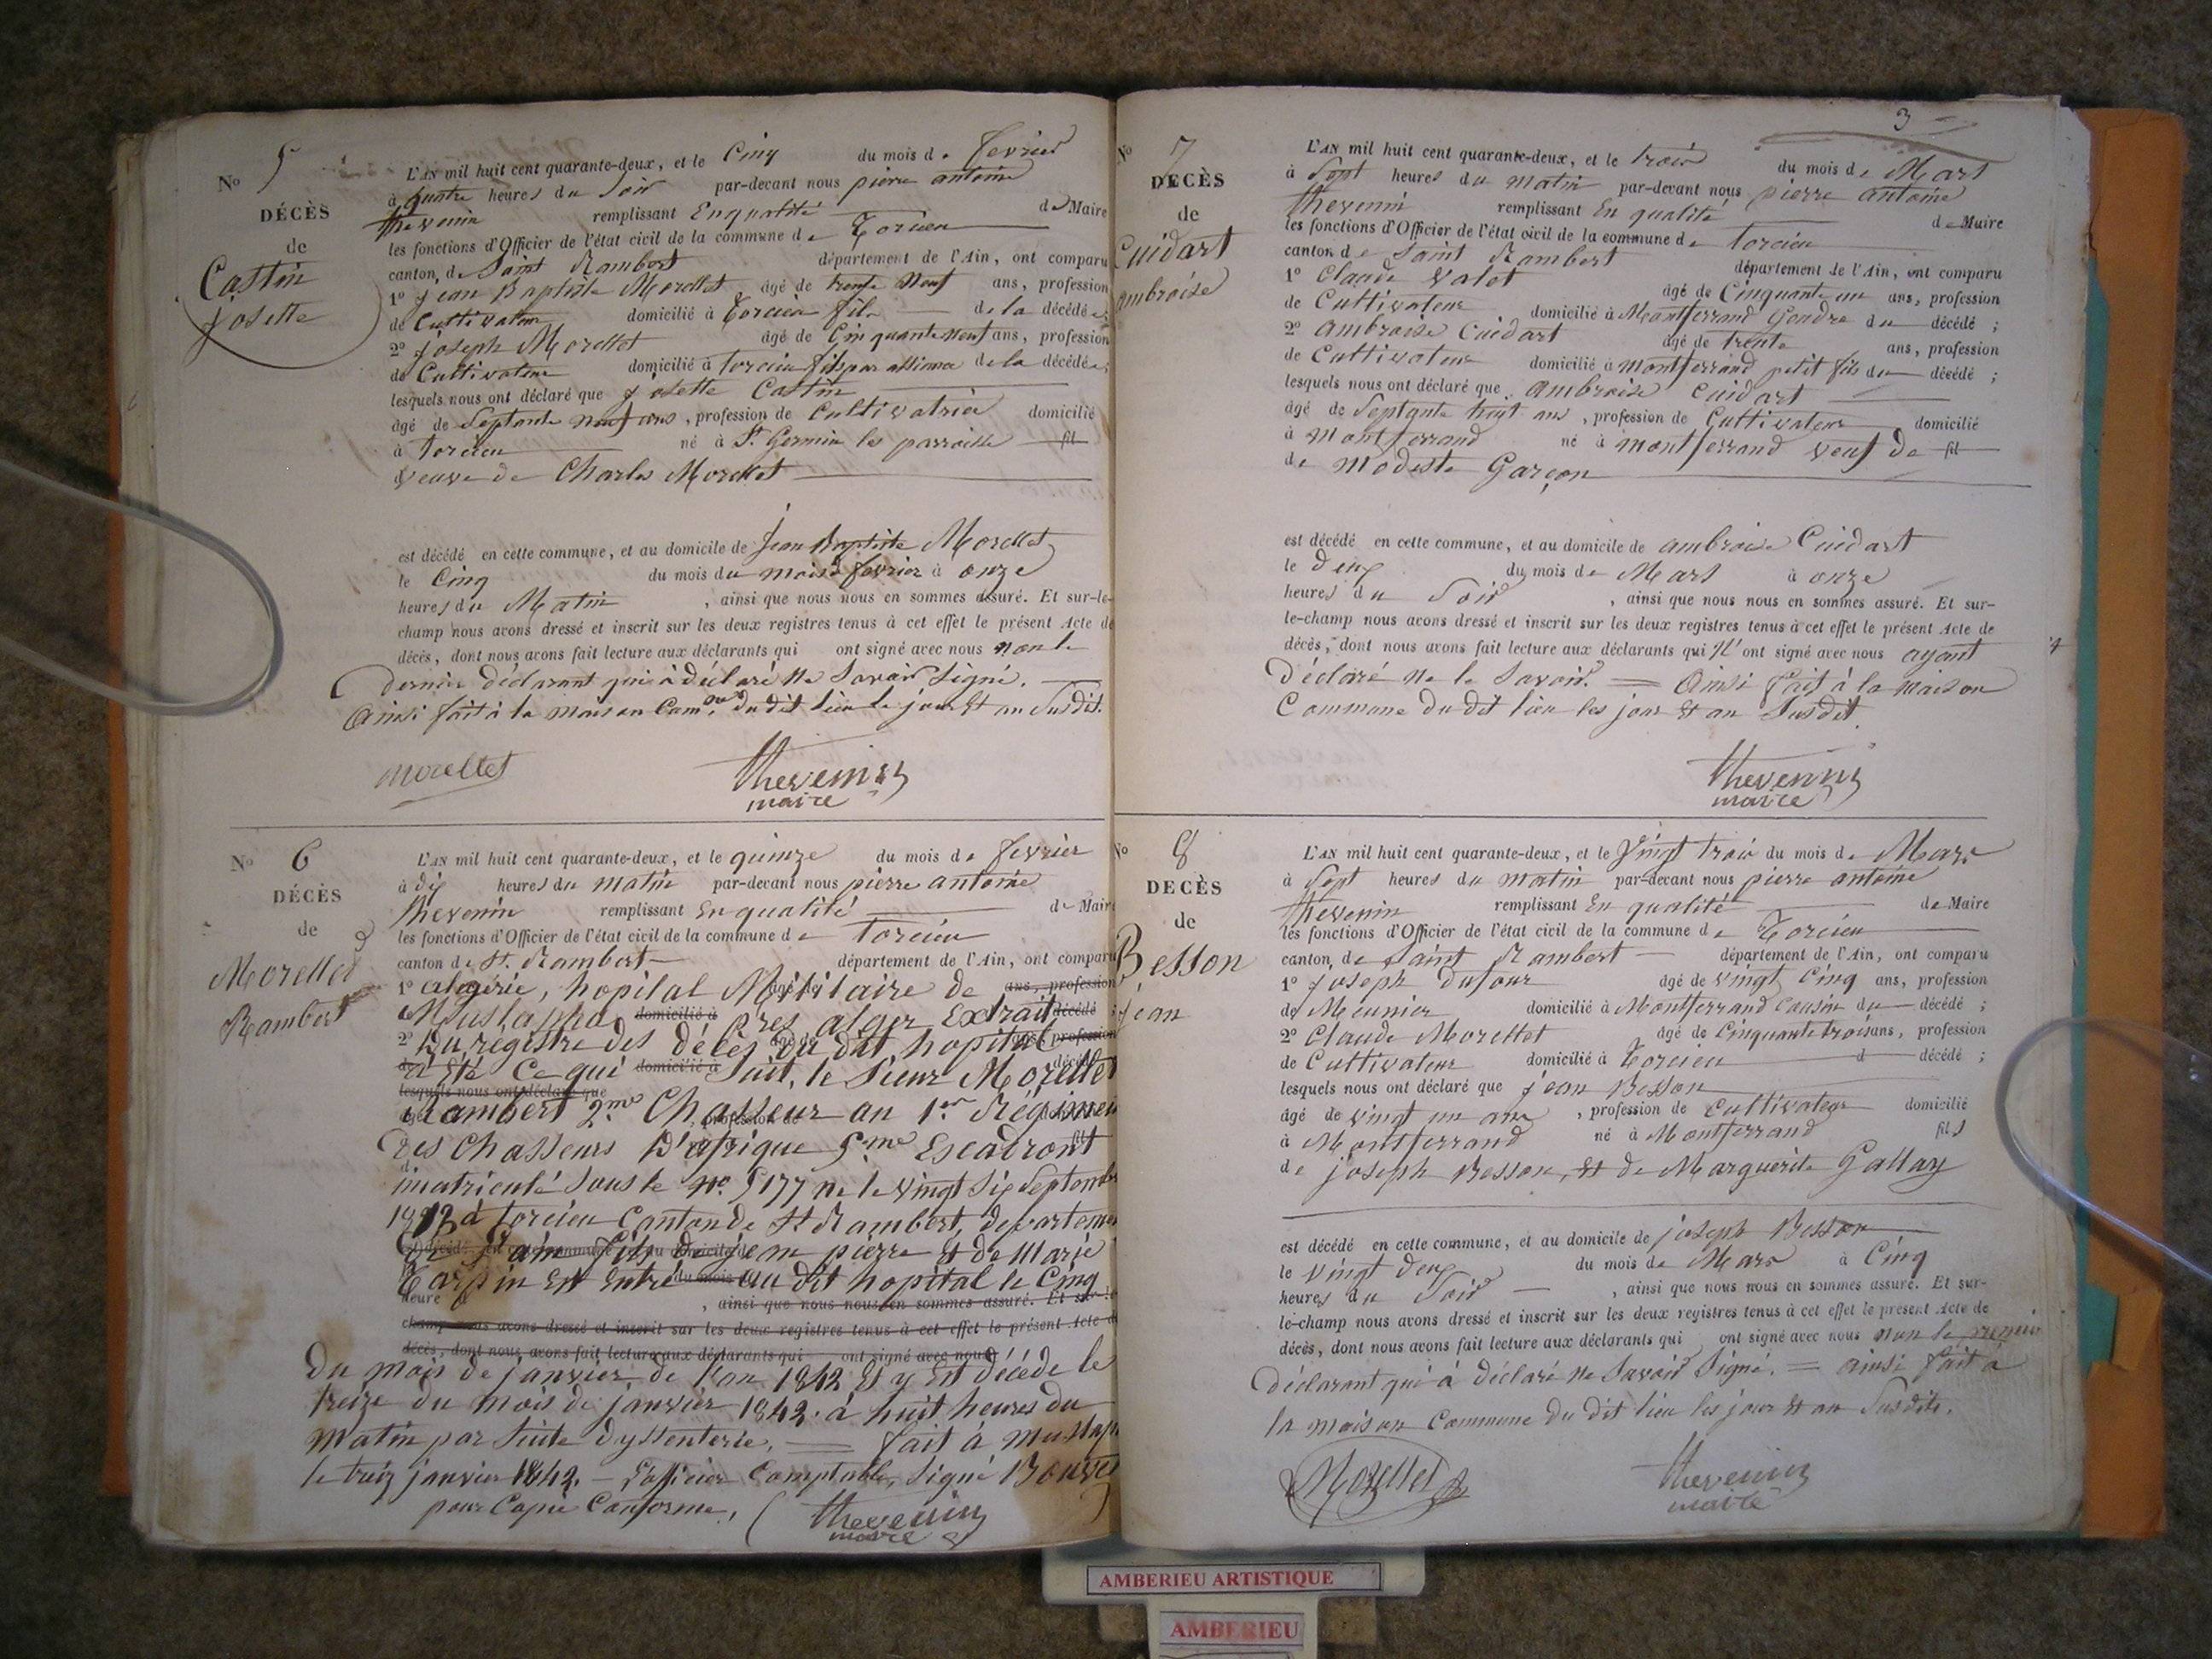 No 5
DÉCÈS
de
Castin
josette
L'AN mil huit cent quarante-deux, et le Cinq du mois de fevrier
à quatre heures du Soir par-devant nous pierre antoine
thevenin remplissant En qualité de Maire
les fonctions d'Officier de l'état civil de la commune de Torcieu
canton de Saint Rambert département de l'Ain, ont comparu
1° jean Baptiste Morellet, âgé de trente Neuf ans, profession
de Cultivateur domicilié à Torcieu fils de la décédée;
2° joseph Morellet âgé de Cinquante neuf ans, profession
de Cultivateur domicilié à torcieu fils par alliance de la décédée;
lesquels nous ont déclaré que josette Castin
âgé de Septante neuf ans, profession de Cultivatrice domicilié
à torcieu né à St Germin les parroisse fil
veuve de Charles Morellet
est décédé en cette commune, et au domicile de Jean Baptiste Morellet
le Cinq du mois du mois de fevrier à onze
heures du Matin, ainsi que nous nous en sommes assuré. Et sur-le-
champ nous avons dressé et inscrit sur les deux registres tenus à cet effet le présent Acte de
décès, dont nous avons fait lecture aux déclarants qui ont signé avec nous non le
dernier déclarant qui à déclaré Ne Savoir Signé.
Ainsi fait à la maison Com.ne du dit lieu le jour Et an Susdit.
morellet
thevenin
maire
No 6
DÉCÈS
de
Morellet
Rambert
L'AN mil huit cent quarante-deux, et le quinze du mois de fevrier
à dix heures du matin par-devant nous pierre antoine
thevenin remplissant En qualité de Maire
les fonctions d'Officier de l'état civil de la commune de Torcieu
canton de St. Rambert département de l'Ain, ont comparu
1° algérie, hopital Militaire de ans, profession
Mustapha domicilié à Près alger Extrait décédé
2° Du régistre des décès du dit hopital profession
a été Ce qui domicilié à Suit, le Sieur Morellet
lesquels nous ont déclaré que
Rambert 2.me Chasseur au 1.er Régimen
Des Chasseurs D'afrique 5.me Escadront
imatriculé Sous le No. 5177 né le vingt Six Septembre
à torcieu Canton de St Rambert, departement
De l'ain fils De jean pierre Et de Marie
Carpin Est Entré au dit hopital le Cinq
heure, ainsi que nous nous en sommes assuré. Et sur-le
champ nous avons dressé et inscrit sur les deux registres tenus à cet effet le présent Acte d
décès, dont nous avons fait lecture aux déclarants qui ont signé avec nous
Du mois de janvier de l'an 1842 Et y Est décédé le
treize du mois de janvier 1842. à huit heures du
Matin par Suite dyssenterie. fait à Mustap
le treiz janvier 1842. L'officier Comptable, Signé Bouvet
pour Copie Conforme,
thevenin
maire
3
No 7
DECÈS
de
Cuidart
ambroise
L'AN mil huit cent quarante-deux, et le trois du mois de Mars
à Sept heures du matin par-devant nous pierre antoine
thevenin remplissant En qualité de Maire
les fonctions d'Officier de l'état civil de la commune de Torcieu
canton de Saint Rambert département de l'Ain, ont comparu
1° Claude Valot âgé de Cinquante un ans, profession
de Cultivateur domicilié à Montferrand Gendre du décédé;
2° ambroise Cuidart âgé de trente ans, profession
de Cultivateur domicilié à montferrand petit fils du décédé;
lesquels nous ont déclaré que ambroise Cuidart
âgé de Septante huit ans, profession de Cultivateur domicilié
à Montferrand né à montferrand veuf de fil
de modeste Garçon
est décédé en cette commune, et au domicile de ambroise Cuidart
le deux du mois de Mars à onze
heures du Soir, ainsi que nous nous en sommes assuré. Et sur-
le-champ nous avons dressé et inscrit sur les deux registres tenus à cet effet le présent Acte de
décès, dont nous avons fait lecture aux déclarants qui N'ont signé avec nous ayant
Déclaré Ne le Savoir. Ainsi fait à la Maison
Commune du dit lieu les jour Et an Susdit.
thevenin
maire
No 8
DECÈS
de
Besson
jean
L'AN mil huit cent quarante-deux, et le Vingt trois du mois de Mars
à Sept heures du matin par-devant nous pierre antoine
thevenin remplissant En qualité de Maire
les fonctions d'Officier de l'état civil de la commune de Torcieu
canton de Saint Rambert département de l'Ain, ont comparu
1° joseph Dufour âgé de vingt Cinq ans, profession
de Meunier domicilié à Montferrand Cousin du décédé;
2° Claude Morellet âgé de Cinquante trois ans, profession
de Cultivateur domicilié à Torcieu d décédé;
lesquels nous ont déclaré que jean Besson
âgé de vingt un ans, profession de Cultivateur domicilié
à Montferrand né à Montferrand fils
de joseph Besson, Et de Marguerite Gallay
est décédé en cette commune, et au domicile de joseph Besson
le vingt deux du mois de Mars à Cinq
heures du Soir, ainsi que nous nous en sommes assuré. Et sur-
le-champ nous avons dressé et inscrit sur les deux registres tenus à cet effet le présent Acte de
décès, dont nous avons fait lecture aux déclarants qui ont signé avec nous non le premier
Déclarant qui à déclaré Ne Savoir Signé. ainsi fait à
la maison Commune du dit lieu les jour Et an Susdits.
Morellet
thevenin
maire
AMBERIEU ARTISTIQUE
AMBERIEU